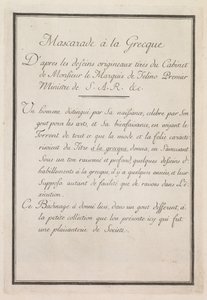 Mascarade à la Grecque
D'après les desseins originaux tirés du Cabinet
de Monsieur le Marquis de Felino Premier
Ministre de S. A. R. &c.
Un homme distingué par Sa naissance, célebre par Son
gout pour les arts, et Sa bienfaisance, en voyant le
Torrent de tout ce que la mode et la folie
du Titre à la grecque, donna, en S'amusant
Sous un ton raisonné et profond, quelques desseins d'
habillements à la grecque, il y a quelques années, et leur
Supposa autant de facilité que de raison dans l'e
xécution.
Ce Badinage à donné lieu, dans un gout different, à
la petite collection que l'on présente icy qui fut
une plaisanterie de Société.